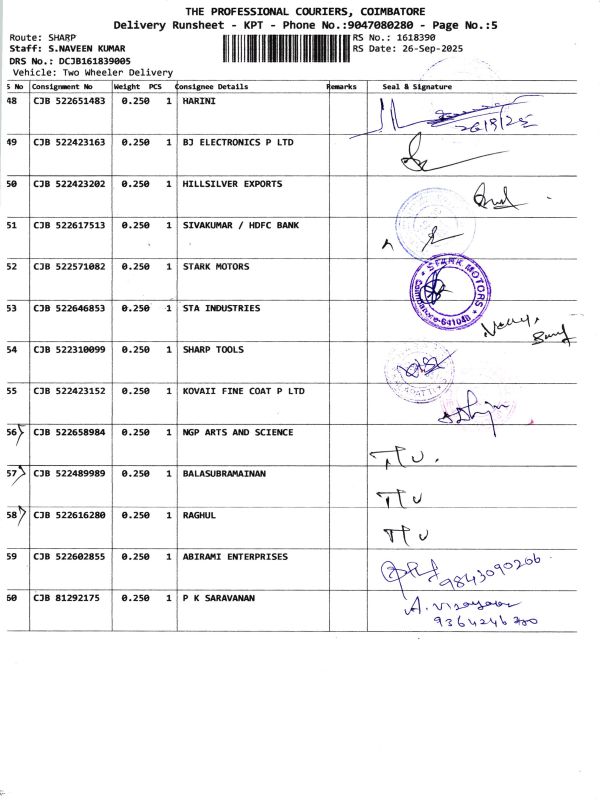 THE PROFESSIONAL COURIERS, COIMBATORE
Delivery Runsheet - KPT - Phone No.:9047080280 - Page No.:5
Route: SHARP RS No.: 1618390
Staff: S.NAVEEN KUMAR RS Date: 26-Sep-2025
DRS No.: DCJB161839005
Vehicle: Two Wheeler Delivery
S No Consignment No Weight PCS Consignee Details Remarks Seal & Signature
48 CJB 522651483 0.250 1 HARINI
26/9/25
49 CJB 522423163 0.250 1 BJ ELECTRONICS P LTD
50 CJB 522423202 0.250 1 HILLSILVER EXPORTS
51 CJB 522617513 0.250 1 SIVAKUMAR / HDFC BANK
52 CJB 522571082 0.250 1 STARK MOTORS
STARK MOTORS
641048
53 CJB 522646853 0.250 1 STA INDUSTRIES
54 CJB 522310099 0.250 1 SHARP TOOLS
55 CJB 522423152 0.250 1 KOVAII FINE COAT P LTD
56 CJB 522658984 0.250 1 NGP ARTS AND SCIENCE
57 CJB 522489989 0.250 1 BALASUBRAMAINAN
58 CJB 522616280 0.250 1 RAGHUL
59 CJB 522602855 0.250 1 ABIRAMI ENTERPRISES
9843090206
60 CJB 81292175 0.250 1 P K SARAVANAN